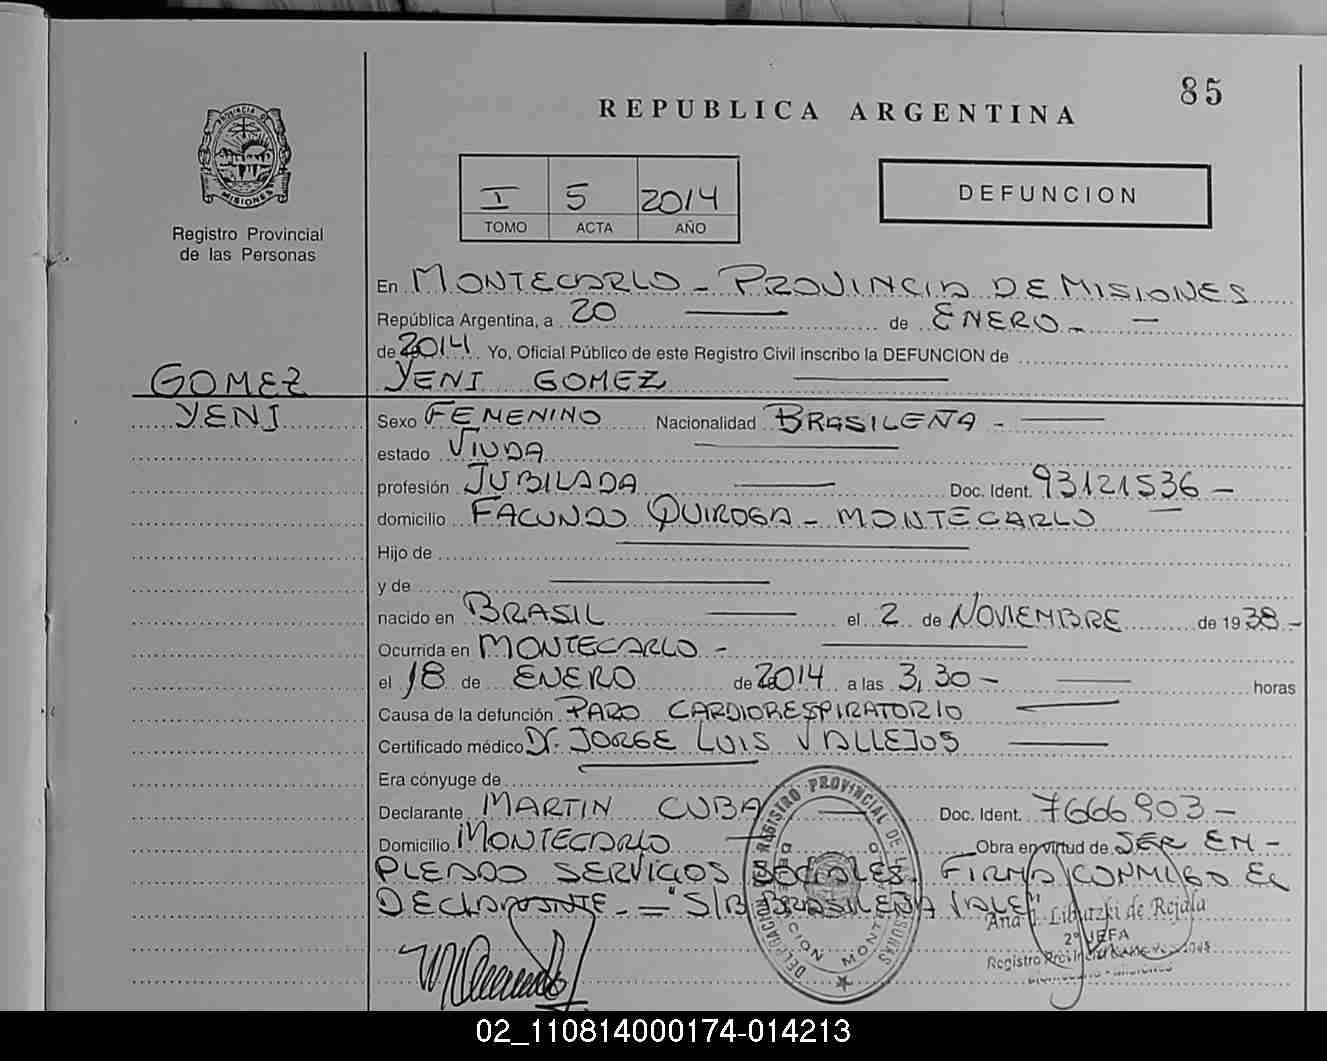 85
REPUBLICA ARGENTINA
PROVINCIA DE
MISIONES
Registro Provincial
de las Personas
I 5 2014
TOMO ACTA AÑO
DEFUNCION
En MONTECARLO - PROVINCIA DE MISIONES
República Argentina, a 20 de ENERO -
de 2014 Yo, Oficial Público de este Registro Civil inscribo la DEFUNCION de
YENI GOMEZ
GOMEZ
YENI
Sexo FEMENINO Nacionalidad BRASILEÑA -
estado VIUDA
profesión JUBILADA Doc. Ident. 93121536 -
domicilio FACUNDO QUIROGA - MONTECARLO
Hijo de
y de
nacido en BRASIL el 2 de NOVIEMBRE de 1938 -
Ocurrida en MONTECARLO -
el 18 de ENERO de 2014 a las 3,30 - horas
Causa de la defunción PARO CARDIORESPIRATORIO
Certificado médico Dr. JORGE LUIS VALLEJOS
Era cónyuge de
Declarante MARTIN CUBA Doc. Ident. 7666903 -
Domicilio MONTECARLO Obra en virtud de SER EM -
PLEADO SERVICIOS SOCIALES. FIRMA CONMIGO EL
DECLARANTE. = "S/B BRASILEÑA VALE"
REGISTRO PROVINCIAL DE LAS
DELEGACION
Ana I. Libutzki de Rejala
2º JEFA
Registro Provincial
02_110814000174-014213